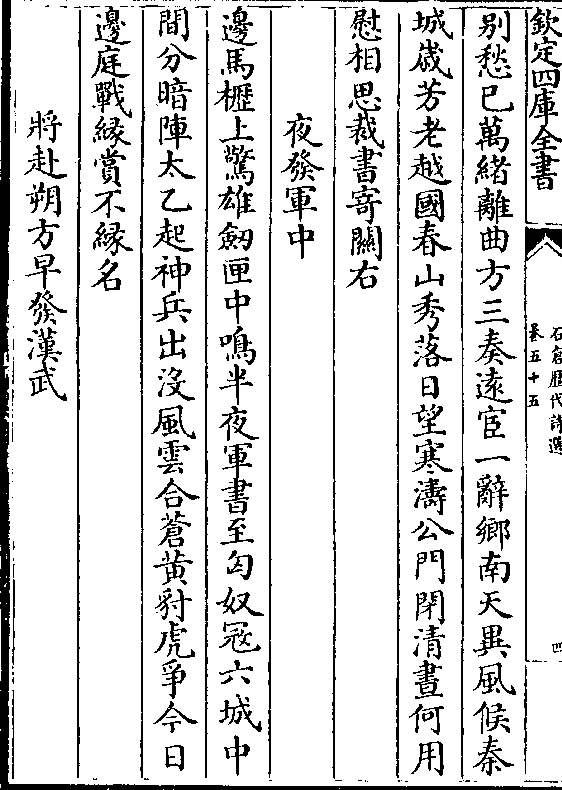 欽定四庫全書
石倉歷代詩選
卷五十五
四
别愁已萬緒離曲方三奏遠宦一辭鄉南天異風候秦
城歲芳老越國春山秀落日望寒濤公門閉清晝何用
慰相思裁書寄關右
夜發軍中
邊馬櫪上驚雄劒匣中鳴半夜軍書至匈奴冦六城中
間分暗陣太乙起神兵出沒風雲合蒼黄豺虎爭今日
邊庭戰緣賞不緣名
將赴朔方早發漢武